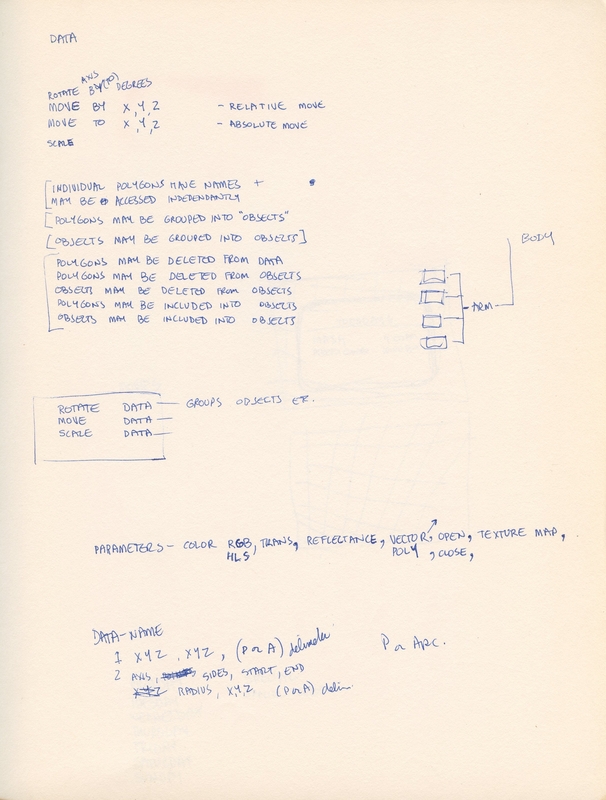 DATA
AXIS
ROTATE BY(TO) DEGREES
MOVE BY X,Y,Z - RELATIVE MOVE
MOVE TO X,Y,Z - ABSOLUTE MOVE
SCALE
[INDIVIDUAL POLYGONS HAVE NAMES +
MAY BE ACCESSED INDEPENDANTLY
[POLYGONS MAY BE GROUPED INTO "OBJECTS"
[OBJECTS MAY BE GROUPED INTO OBJECTS]
POLYGONS MAY BE DELETED FROM DATA
POLYGONS MAY BE DELETED FROM OBJECTS
OBJECTS MAY BE DELETED FROM OBJECTS
POLYGONS MAY BE INCLUDED INTO OBJECTS
OBJECTS MAY BE INCLUDED INTO OBJECTS
BODY
ARM
ROTATE DATA — GROUPS OBJECTS
MOVE DATA —
SCALE DATA —
PARAMETERS - COLOR RGB, TRANS, REFLECTANCE, VECTOR, OPEN, TEXTURE MAP,
HLS POLY, CLOSE,
DATA-NAME
1 XYZ, XYZ, (P or A) delimeter
P or ARC.
2 AXIS, SIDES, START, END
RADIUS, X,Y,Z (P or A) delim.